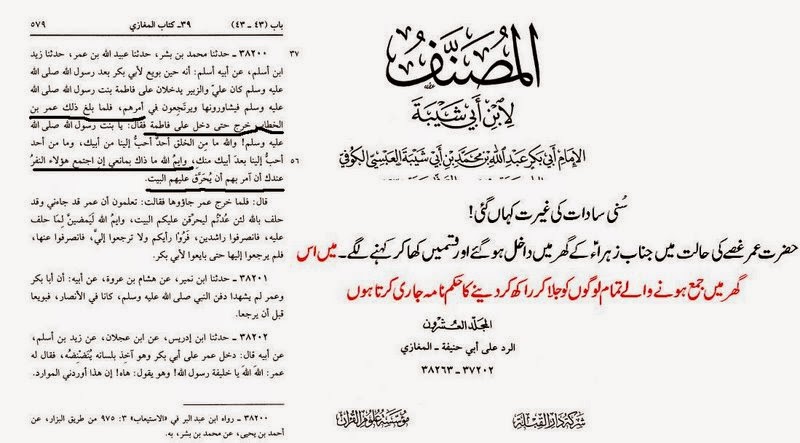 باب (٤٣ - ٤٣)
٣٩- كتاب المغازي
٥٧٩
٣٨٢٠٠ - حدثنا محمد بن بشر، حدثنا عبيد الله بن عمر، حدثنا زيد
٣٧
ابن أسلم، عن أبيه أسلم: أنه حين بويع لأبي بكر بعد رسول الله صلى الله
عليه وسلم كان عليّ والزبير يدخلان على فاطمة بنت رسول الله صلى الله
عليه وسلم فيشاورونها ويرتجعون في أمرهم، فلما بلغ ذلك عمر بن
الخطاب خرج حتى دخل على فاطمة فقال: يا بنت رسول الله صلى الله
عليه وسلم! والله ما مِن الخلق أحدٌ أحبُّ إلينا من أبيك، وما من أحد
أحبُّ إلينا بعدَ أبيك منكِ، وايمُ الله ما ذاك بمانعي إن اجتمع هؤلاء النفرُ
٥٦
عندك أن آمر بهم أن يُحَرَّق عليهم البيت.
قال: فلما خرج عمر جاؤوها فقالت: تعلمون أن عمر قد جاءني وقد
حلف بالله لئن عدْتُم ليحرِّقن عليكم البيت، وايم الله لَيَمضينَّ لِما حلف
عليه، فانصرفوا راشدين، فَرُوا رأيكم ولا ترجعوا إليَّ، فانصرفوا عنها،
فلم يرجعوا إليها حتى بايعوا لأبي بكر.
٣٨٢٠١ - حدثنا ابن نمير، عن هشام بن عروة، عن أبيه: أن أبا بكر
وعمر لم يشهدا دفن النبي صلى الله عليه وسلم، كانا في الأنصار، فبويعا
قبل أن يرجعا.
٣٨٢٠٢ - حدثنا ابن إدريس، عن ابن عجلان، عن زيد بن أسلم،
عن أبيه قال: دخل عمر على أبي بكر وهو آخِذ بلسانه يُنَضْنِضُه، فقال له
عمر: اللهَ اللهَ يا خليفة رسول الله! وهو يقول: هاه! إن هذا أوردني الموارد.
٣٨٢٠٠ - رواه ابن عبد البر في «الاستيعاب» ٣: ٩٧٥ من طريق البزار، عن
أحمد بن يحيى، عن محمد بن بشر، به.
المُصَنَّفُ
لِابْنِ أَبِي شَيْبَةَ
الإمام أبي بكر عبد الله بن محمد بن أبي شيبة العبسي الكوفي
سُنی سادات کی غیرت کہاں گئی!
حضرت عمر غصے کی حالت میں جناب زہراءؑ کے گھر میں داخل ہو گئے اور قسمیں کھا کر کہنے لگے۔ میں اس
گھر میں جمع ہونے والے تمام لوگوں کو جلا کر راکھ کر دینے کا حکم نامہ جاری کرتا ہوں
المجلد العشرون
الرد على أبي حنيفة - المغازي
٣٧٢٠٢ - ٣٨٢٦٣
شركة دار القبلة
مؤسسة علوم القرآن